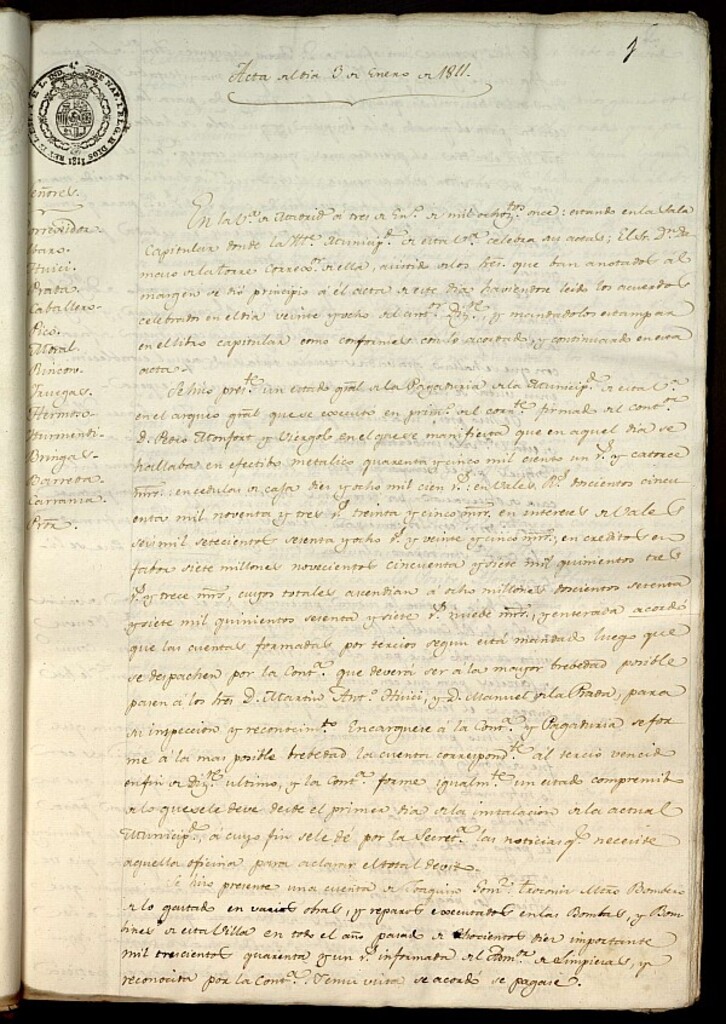 1
Acta del dia 3 de Enero de 1811.
JOSE NAP. I. P. L. G. D. DIOS REY D. L. ESP. Y D. L. IND.
1811
eñores.
orregidor
Huici.
Prada.
Caballero.
Pico.
Moral.
Rincon.
Hermoso
Iturmendi.
Bringas.
Barreda.
Carranza.
En la V.ª de Madrid á tres de En.º de mil ochoz.tos once: estando en la Sala
Capitular donde la Ill.e Municip.d de esta V.ª celebra sus actas; El Sr. D.n Da
maso de la Torre Correg.or de ella, asistido de los Sres. que ban anotados al
margen se dió principio á el acta de este dia haviendose leido los acuerdos
celebrados en el dia veinte y ocho del ant.or Diz.e, y mandadolos estampar
en el libro capitular como conformes con lo acordado, y continuando en esta
acta.
Se hizo pres.te un estado gral de la Pagaduria de la Municip.d de esta V.ª
en el arqueo gral que se executó en prim.º del corr.te firmado del Cont.or
D. Pedro Monfort y Viergol en el que se manifiesta que en aquel dia se
hallaba en efectibo metalico quarenta y cinco mil ciento un r.s y catorce
mrs.: en cedulas de caja diez y ocho mil cien r.s: en Vales R.s doscientos cincu
enta mil noventa y tres r.s treinta y cinco mrs, en intereses de Vales
seis mil setecientos setenta y ocho r.s y veinte y cinco mrs; en creditos en
fabor siete millones novecientos cincuenta y siete mil quinientos tres
r.s y trece mrs, cuyos totales ascendian á ocho millones doscientos setenta
y siete mil quinientos setenta y siete r.s nuebe mrs; y enterada acordó
que las cuentas formadas por tercios segun está mandado luego que
se despachen por la Cont.ª que deverá ser a la mayor brebedad posible
pasen á los Sres D. Martin Ant.º Huici, y D. Manuel de la Prada, para
su inspeccion y reconocim.to Encarguese á la Cont.ª y Pagaduria se for
me á la mas posible brebedad la cuenta correspond.te al tercio vencido
en fin de Diz.e ultimo, y la Cont.ª forme igualm.te un estado comprensibo
de lo que se le deve desde el primer dia de la instalacion de la actual
Municip.d, á cuyo fin se le dé por la Secret.ª las noticias q.e necesite
aquella oficina para aclarar el total devito.
Se hizo presente una cuenta de Joaquin Mtro Bombero
de lo gastado en varias obras, y reparos executados en las Bombas, y Bom
bines de esta Villa en todo el año pasado de ochocientos diez importante
mil trescientos quarenta y un r.s informada del Adm.or de Limpiezas, y
reconocida por la Cont.ª. En su vista se acordó se pagase.